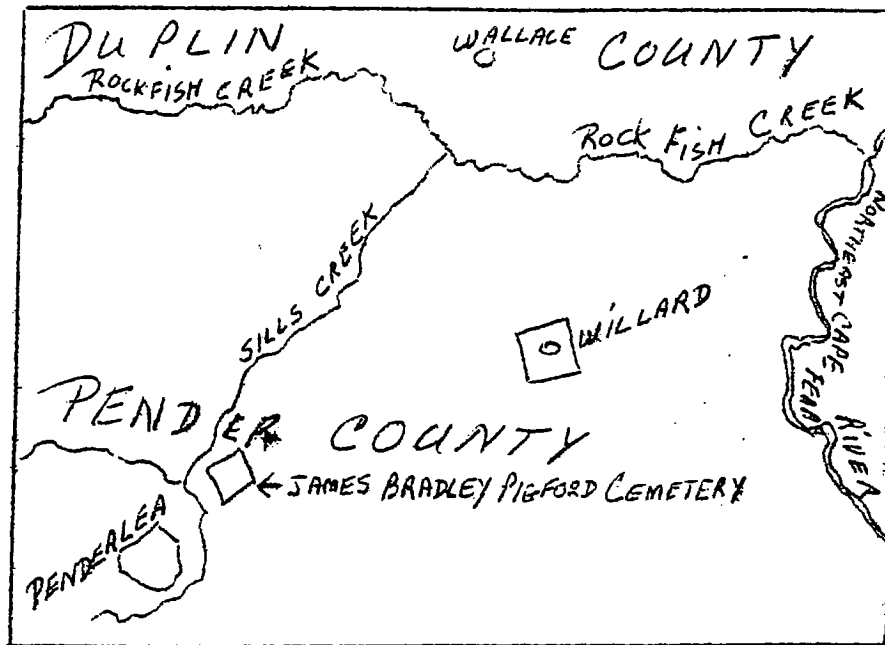 DUPLIN COUNTY
WALLACE
ROCKFISH CREEK
ROCK FISH CREEK
NORTHEAST CAPE FEAR RIVER
SILLS CREEK
WILLARD
PENDER COUNTY
JAMES BRADLEY PIGFORD CEMETERY
PENDEALEA